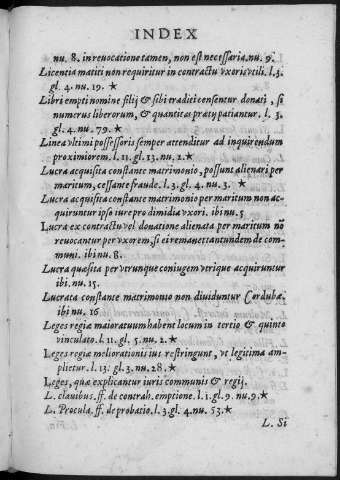 INDEX
nu. 8. in revocatione tamen, non est necessaria. nu. 9.
Licentia matiti non requiritur in contractu vxori vtili. l. 3.
gl. 4. nu. 19. ★
Libri empti nomine filij & sibi traditi censentur donati, si
numerus liberorum, & quantitas praty patiantur. l. 3.
gl. 4. nu. 79. ★
Linea vltimi possessoris semper attenditur ad inquirendum
proximiorem. l. 11. gl. 13. nu. 2. ★
Lucra acquisita constante matrimonio, possunt alienari per
maritum, cessante fraude. l. 3. gl. 4. nu. 3. ★
Lucra acquisita constante matrimonio per maritum non ac-
quiruntur ipso iure pro dimidia vxori. ibi nu. 5
Lucra ex contractu vel donatione alienata per maritum nō
revocantur per vxorem, si ei remanet tantundem de com-
muni. ibi nu. 8.
Lucra quæsita per vtrunque coniugem vtrique acquiruntur
ibi. nu. 15.
Lucrata constante matrimonio non dividuntur Cordubæ.
ibi nu. 16
Leges regiæ maioratuum habent locum in tertio & quinto
vinculato. l. 11. gl. 5. nu. 2. ★
Leges regiæ meliorationis ius restringunt, vt legitima am-
plietur. l. 13. gl. 3. nu. 28. ★
Leges, quæ explicantur iuris communis & regij.
L. clavibus. ff. de contrah. emptione. l. 1. gl. 9. nu. 9. ★
L. Procula. ff. de probatio. l. 3. gl. 4. nu. 53. ★
L. Si